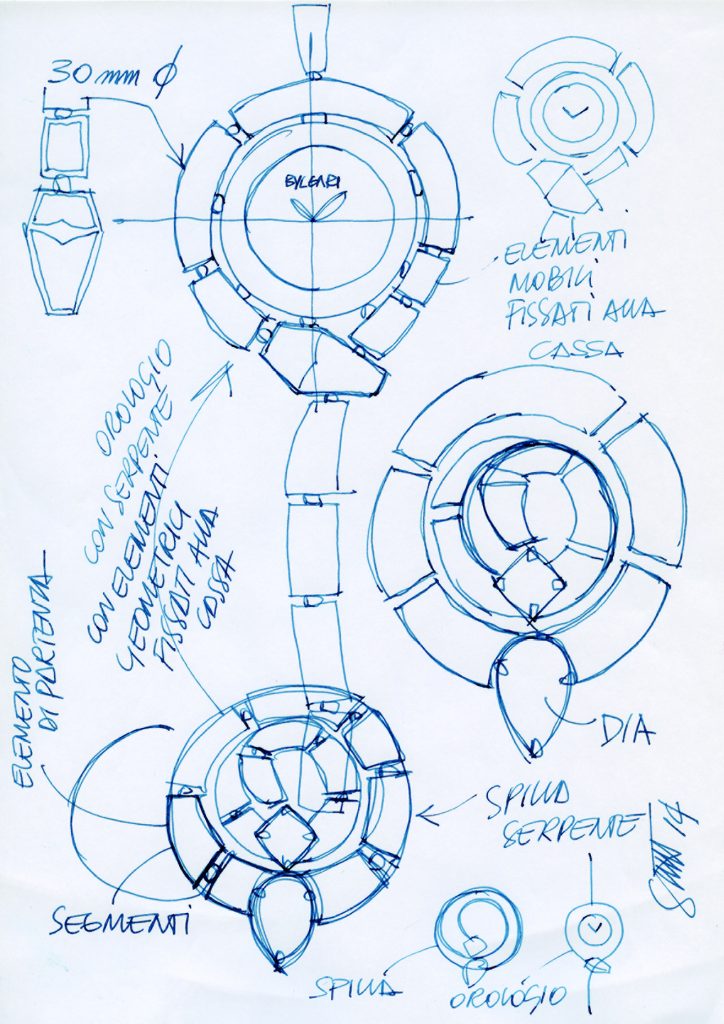 30 mm ø
BVLGARI
ELEMENTI
MOBILI
FISSATI ALLA
CASSA
OROLOGIO
CON SERPENTE
CON ELEMENTI
GEOMETRICI
FISSATI ALLA
CASSA
ELEMENTO
DI PARTENZA
DIA
SPILLA
SERPENTE
14
SEGMENTI
SPILLA
OROLOGIO